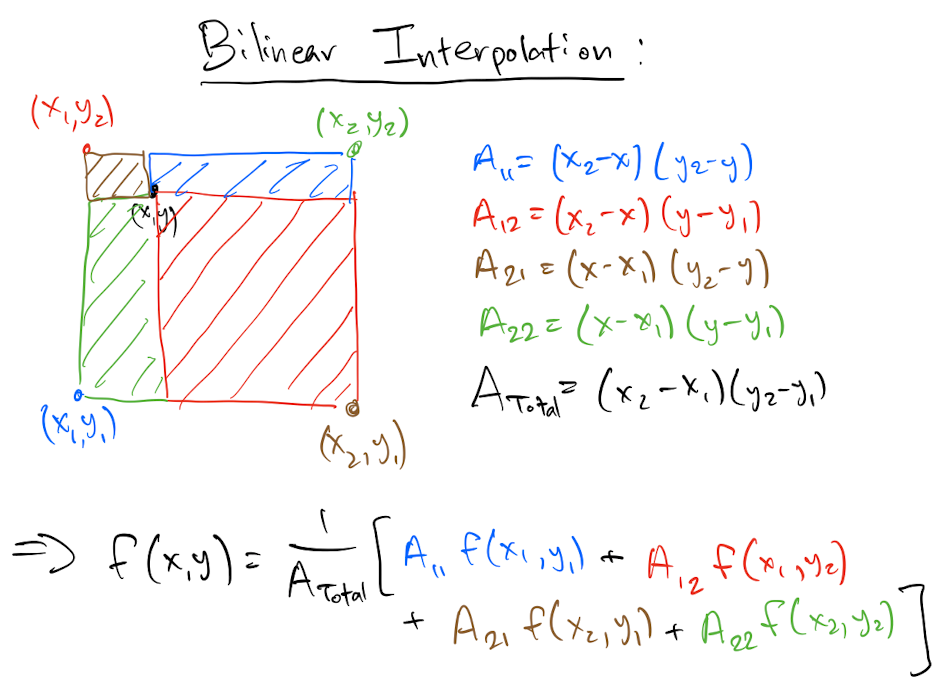 Bilinear Interpolation:
(x₁,y₂)
(x₂,y₂)
(x,y)
(x₁,y₁)
(x₂,y₁)
A₁₁ = (x₂-x)(y₂-y)
A₁₂ = (x₂-x)(y-y₁)
A₂₁ = (x-x₁)(y₂-y)
A₂₂ = (x-x₁)(y-y₁)
A_Total = (x₂-x₁)(y₂-y₁)
⇒ f(x,y) = 1/A_Total [A₁₁ f(x₁,y₁) + A₁₂ f(x₁,y₂)
+ A₂₁ f(x₂,y₁) + A₂₂ f(x₂,y₂)]